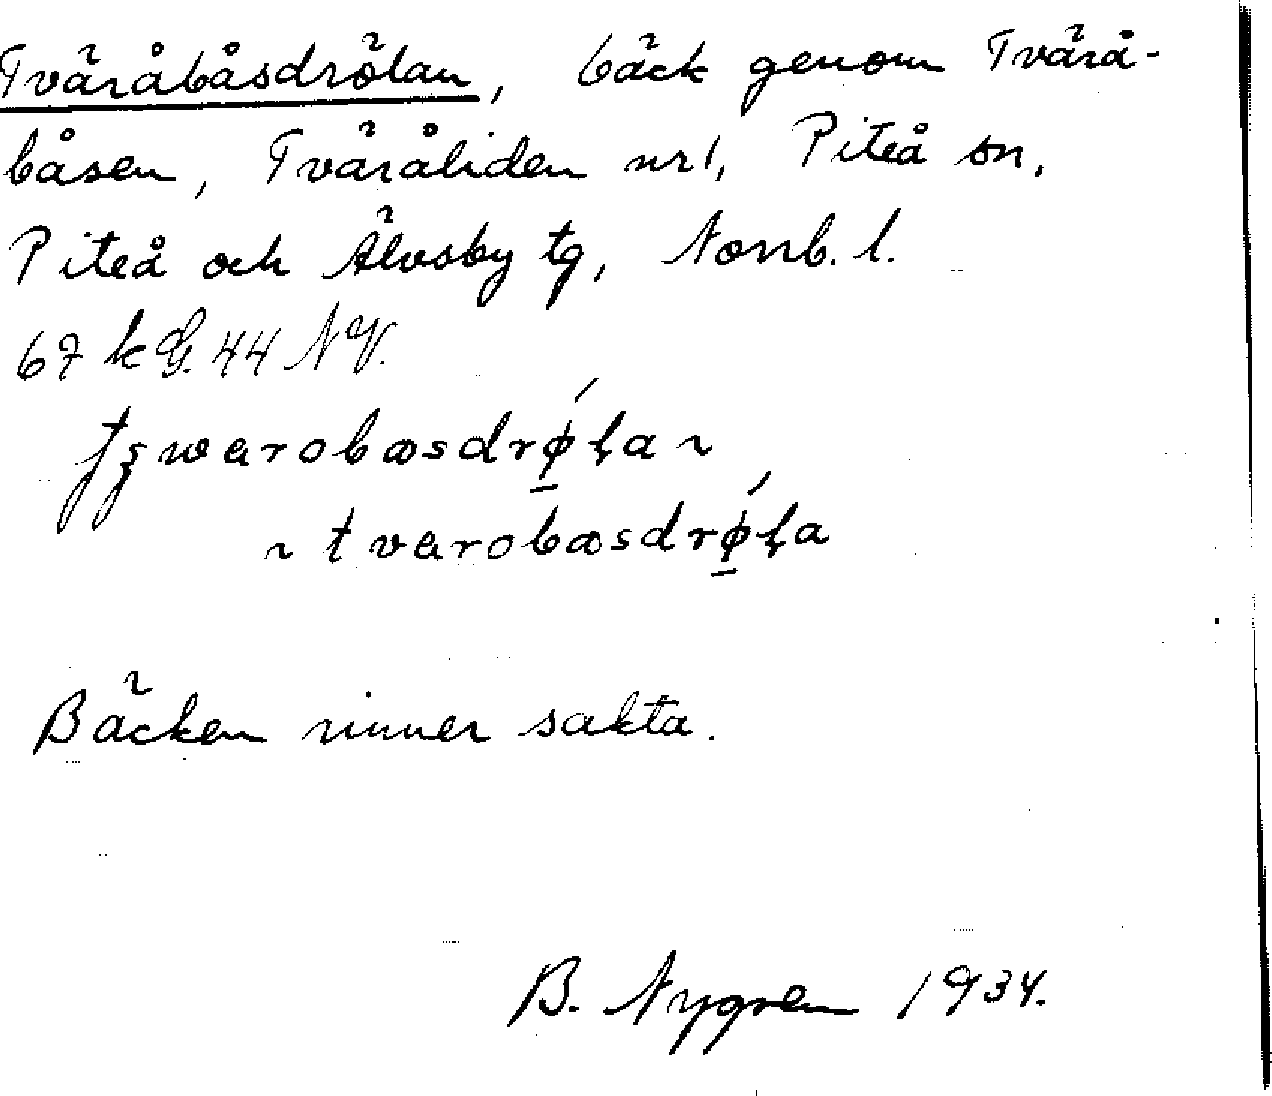 Tväråbåsdrölan, bäck genom Tvärå-
båsen, Tväråliden nr 1, Piteå sn,
Piteå och Älvsby tg, Norrb. l.
67 k G. 44 NV.
warobasdrǿ̲ɭa ~
~ tvarobasdrǿ̲ɭa
Bäcken rinner sakta.
B. Nygren 1934.